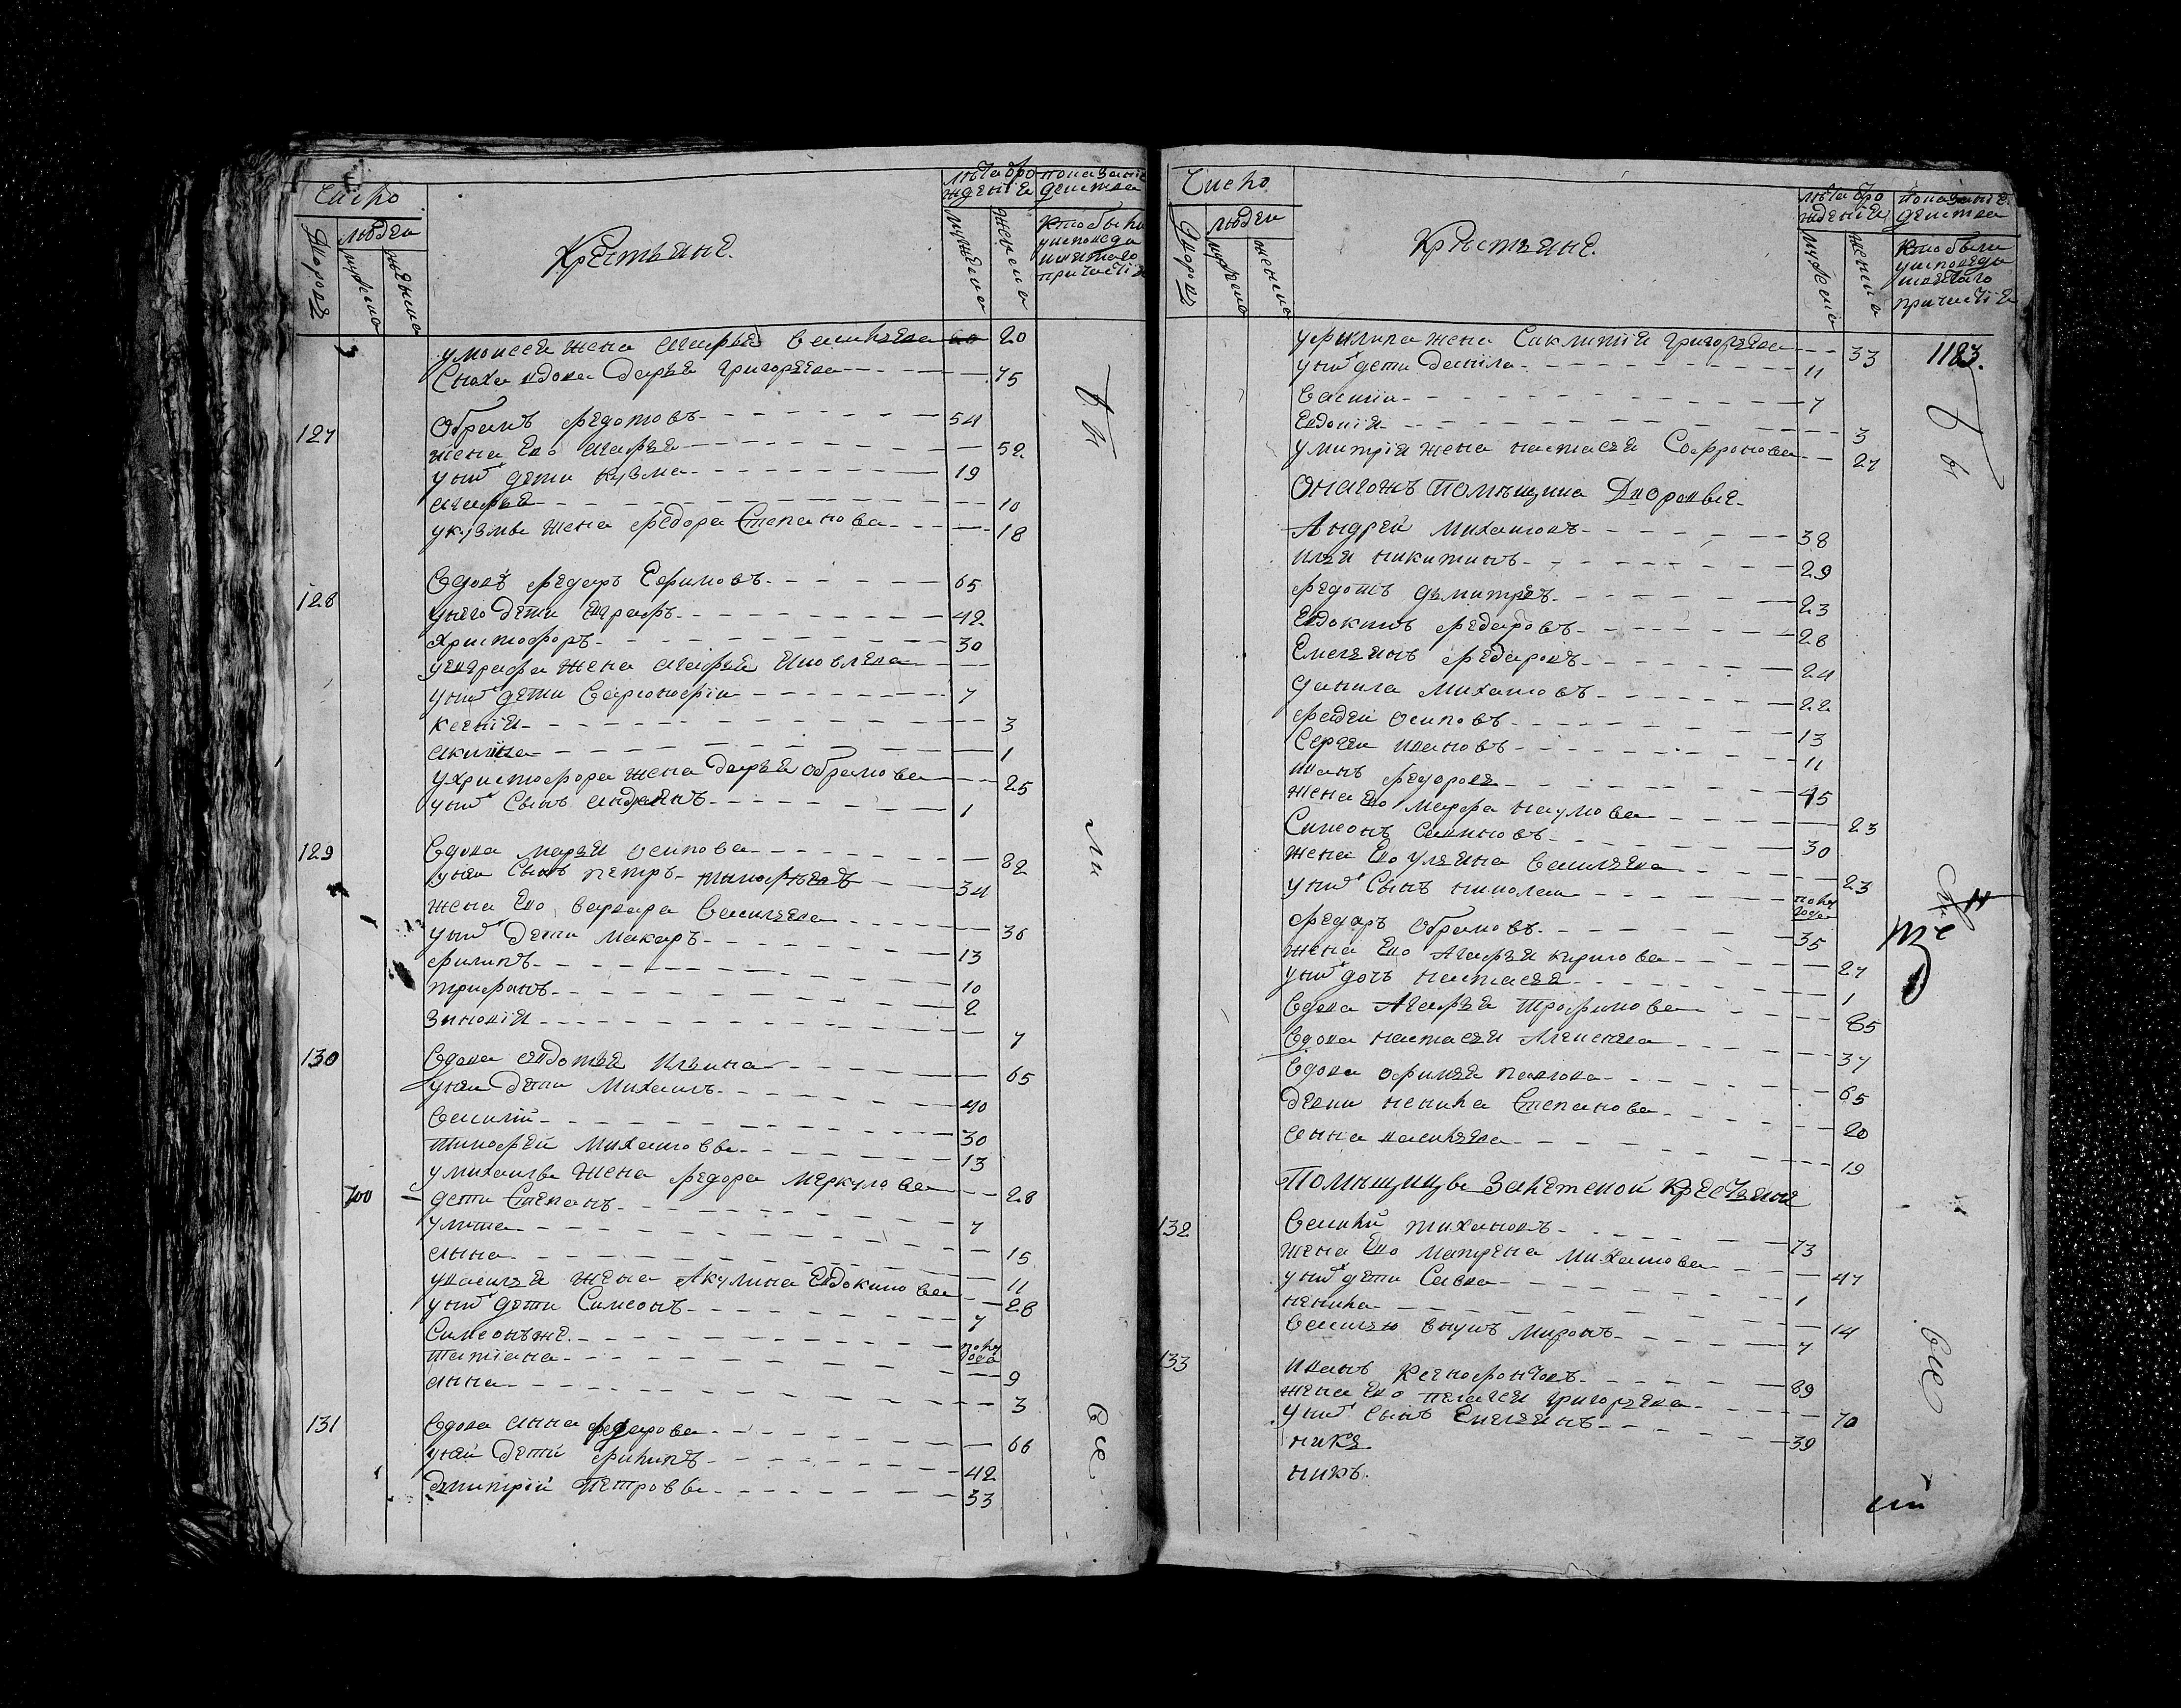 Число
людеи
Дворовъ
мужеска
женска
Крестьяне.
лѣта отро
жденїя
мужеска
женска
показанїе
действа
Кто были
у исповеди
и святаго
причастїя
у моисея жена агафья васильева 20
Сноха вдова дарья григорьева 45
127 Обрамъ федотовъ 54
жена ево агафья 52
у них дети кузма 19
агафья 10
у кузмы жена федора Степанова 18
128 Вдовъ федаръ Ефимовъ 65
у него дети Евграфъ 42
христофоръ 30
у евграфа жена агафья Яковлева
у них дети варфоломей 7
ксения 3
акилина 1
у христофора жена дарья обрамова 25
у них Сынъ андреянъ 1
129 Вдова марья осипова 82
у неи Сынъ петръ тимофѣевъ 34
жена ево варвара васильева 36
у них дети макаръ 13
филипъ 10
трифанъ 2
зиновїя 7
130 Вдова авдотья ильина 65
у неи дети михаилъ 40
василїй 30
тимофей михаиловы 13
у михаилы жена федора меркулова 28
700 дети Степанъ 7
улита 15
анна 11
у василья жена Акулина Евдокимова 28
у них дети Симеонъ 7
Симеонъ же полу года
татиана 9
анна 3
131 Вдова анна федарова 66
у неи дети филипъ 42
дмитрїи петровы 33
бы
ли
все
Число
людеи
Дворовъ
мужеска
женска
Крестьяне.
лѣта отро
жденїя
мужеска
женска
показанїе
действа
Кто были
у исповеди
и святаго
причастїя
1183.
у филипа жена Сиклитїя григорьева 33
у них дети данила 11
василїи 7
Евдокїя 3
у митрїя жена настасья Софронова 27
Онагожъ Помѣщика Дворовые
Андрей михаиловъ 38
илья никитинъ 29
федотъ дьмитрев 23
Евдокимъ федаровъ 28
Емельянъ федаровъ 24
данила михаиловъ 22
фадеи осиповъ 13
Сергеи ивановъ 11
иванъ федоровъ 45
жена ево марфа наумова 23
Симеонъ Савиновъ 30
жена ево ульяна васильева 23
у них Сынъ николаи полу года
федаръ обрамовъ 35
жена ево Агафья кирилова 27
у них дочь настасья 1
Вдова Агафья трофимова 85
Вдова настасья Алексеева 37
Вдова офимья павлова 65
девки ненила Степанова 20
анна васильева 19
Помѣщицы Залетеной Кресчьяне
132 Василїй тихановъ 73
жена ево матрена михаилова 47
у них дети Савва 1
ненила 14
василью внукъ миронъ 7
133 иванъ ксенофонтовъ 89
жена ево пелагея григорьева 70
у них сынъ Емельянъ 39
никъ
никъ.
бы
все